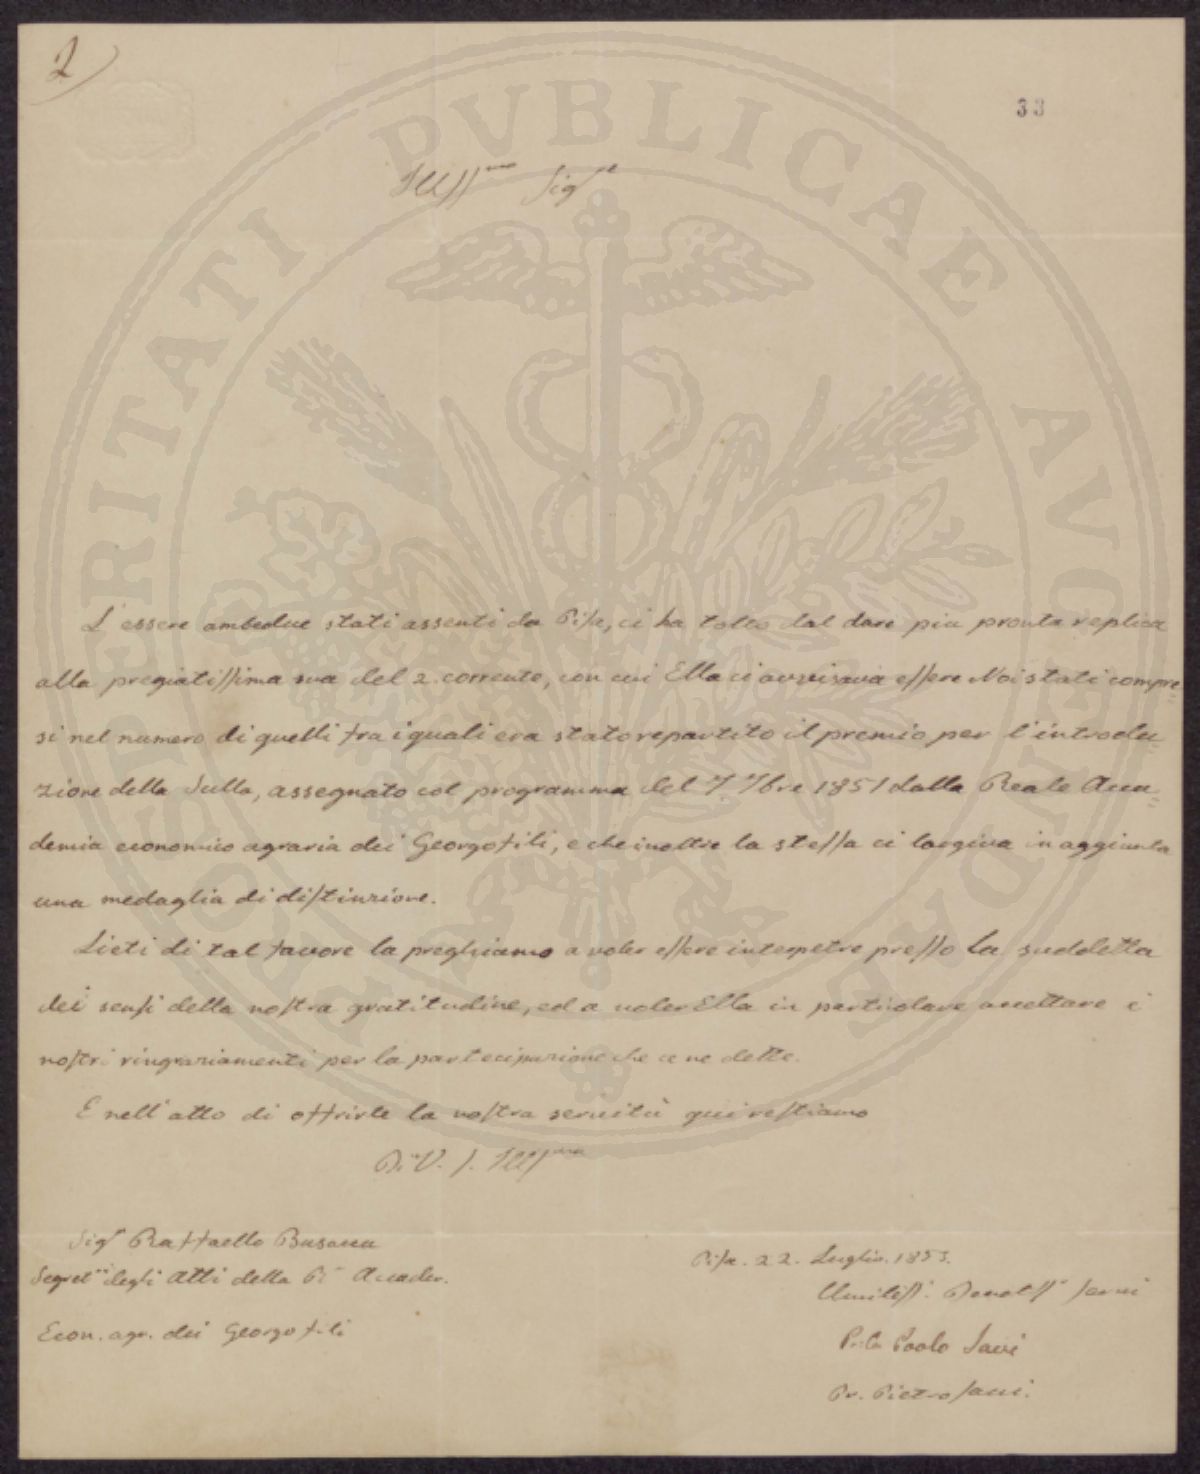 2)
33
Illmo Sigre
PROSPERITATI PVBLICAE AVGENDAE
L'essere ambedue stati assenti da Pisa, ci ha tolto dal dare piu pronta replica
alla pregiatissima sua del 2. corrente, con cui Ella ci avvisava essere Noi stati compre-
si nel numero di quelli tra i quali era stato repartito il premio per l'introdu-
zione della Sulla, assegnato col programma del 7. 7bre 1851 dalla Reale Acca-
demia economico agraria dei Georgofili, e che inoltre la stessa ci largiva in aggiunta
una medaglia di distinzione.
Lieti di tal favore la preghiamo a voler essere interpetre presso la suddetta
dei sensi della nostra gratitudine, ed a voler Ella in particolare accettare i
nostri ringraziamenti per la partecipazione che ce ne dette.
E nell'atto di offrirle la nostra servitù qui restiamo
Di V. S. Illma
Sigr Raffaello Busacca
Segretio degli Atti della Re Accadea.
Econ. agr. dei Georgofili
Pisa. 22. Luglio. 1853.
Umilissi. Devotssi servi
Paolo Savi
Pr. Pietro Savi.